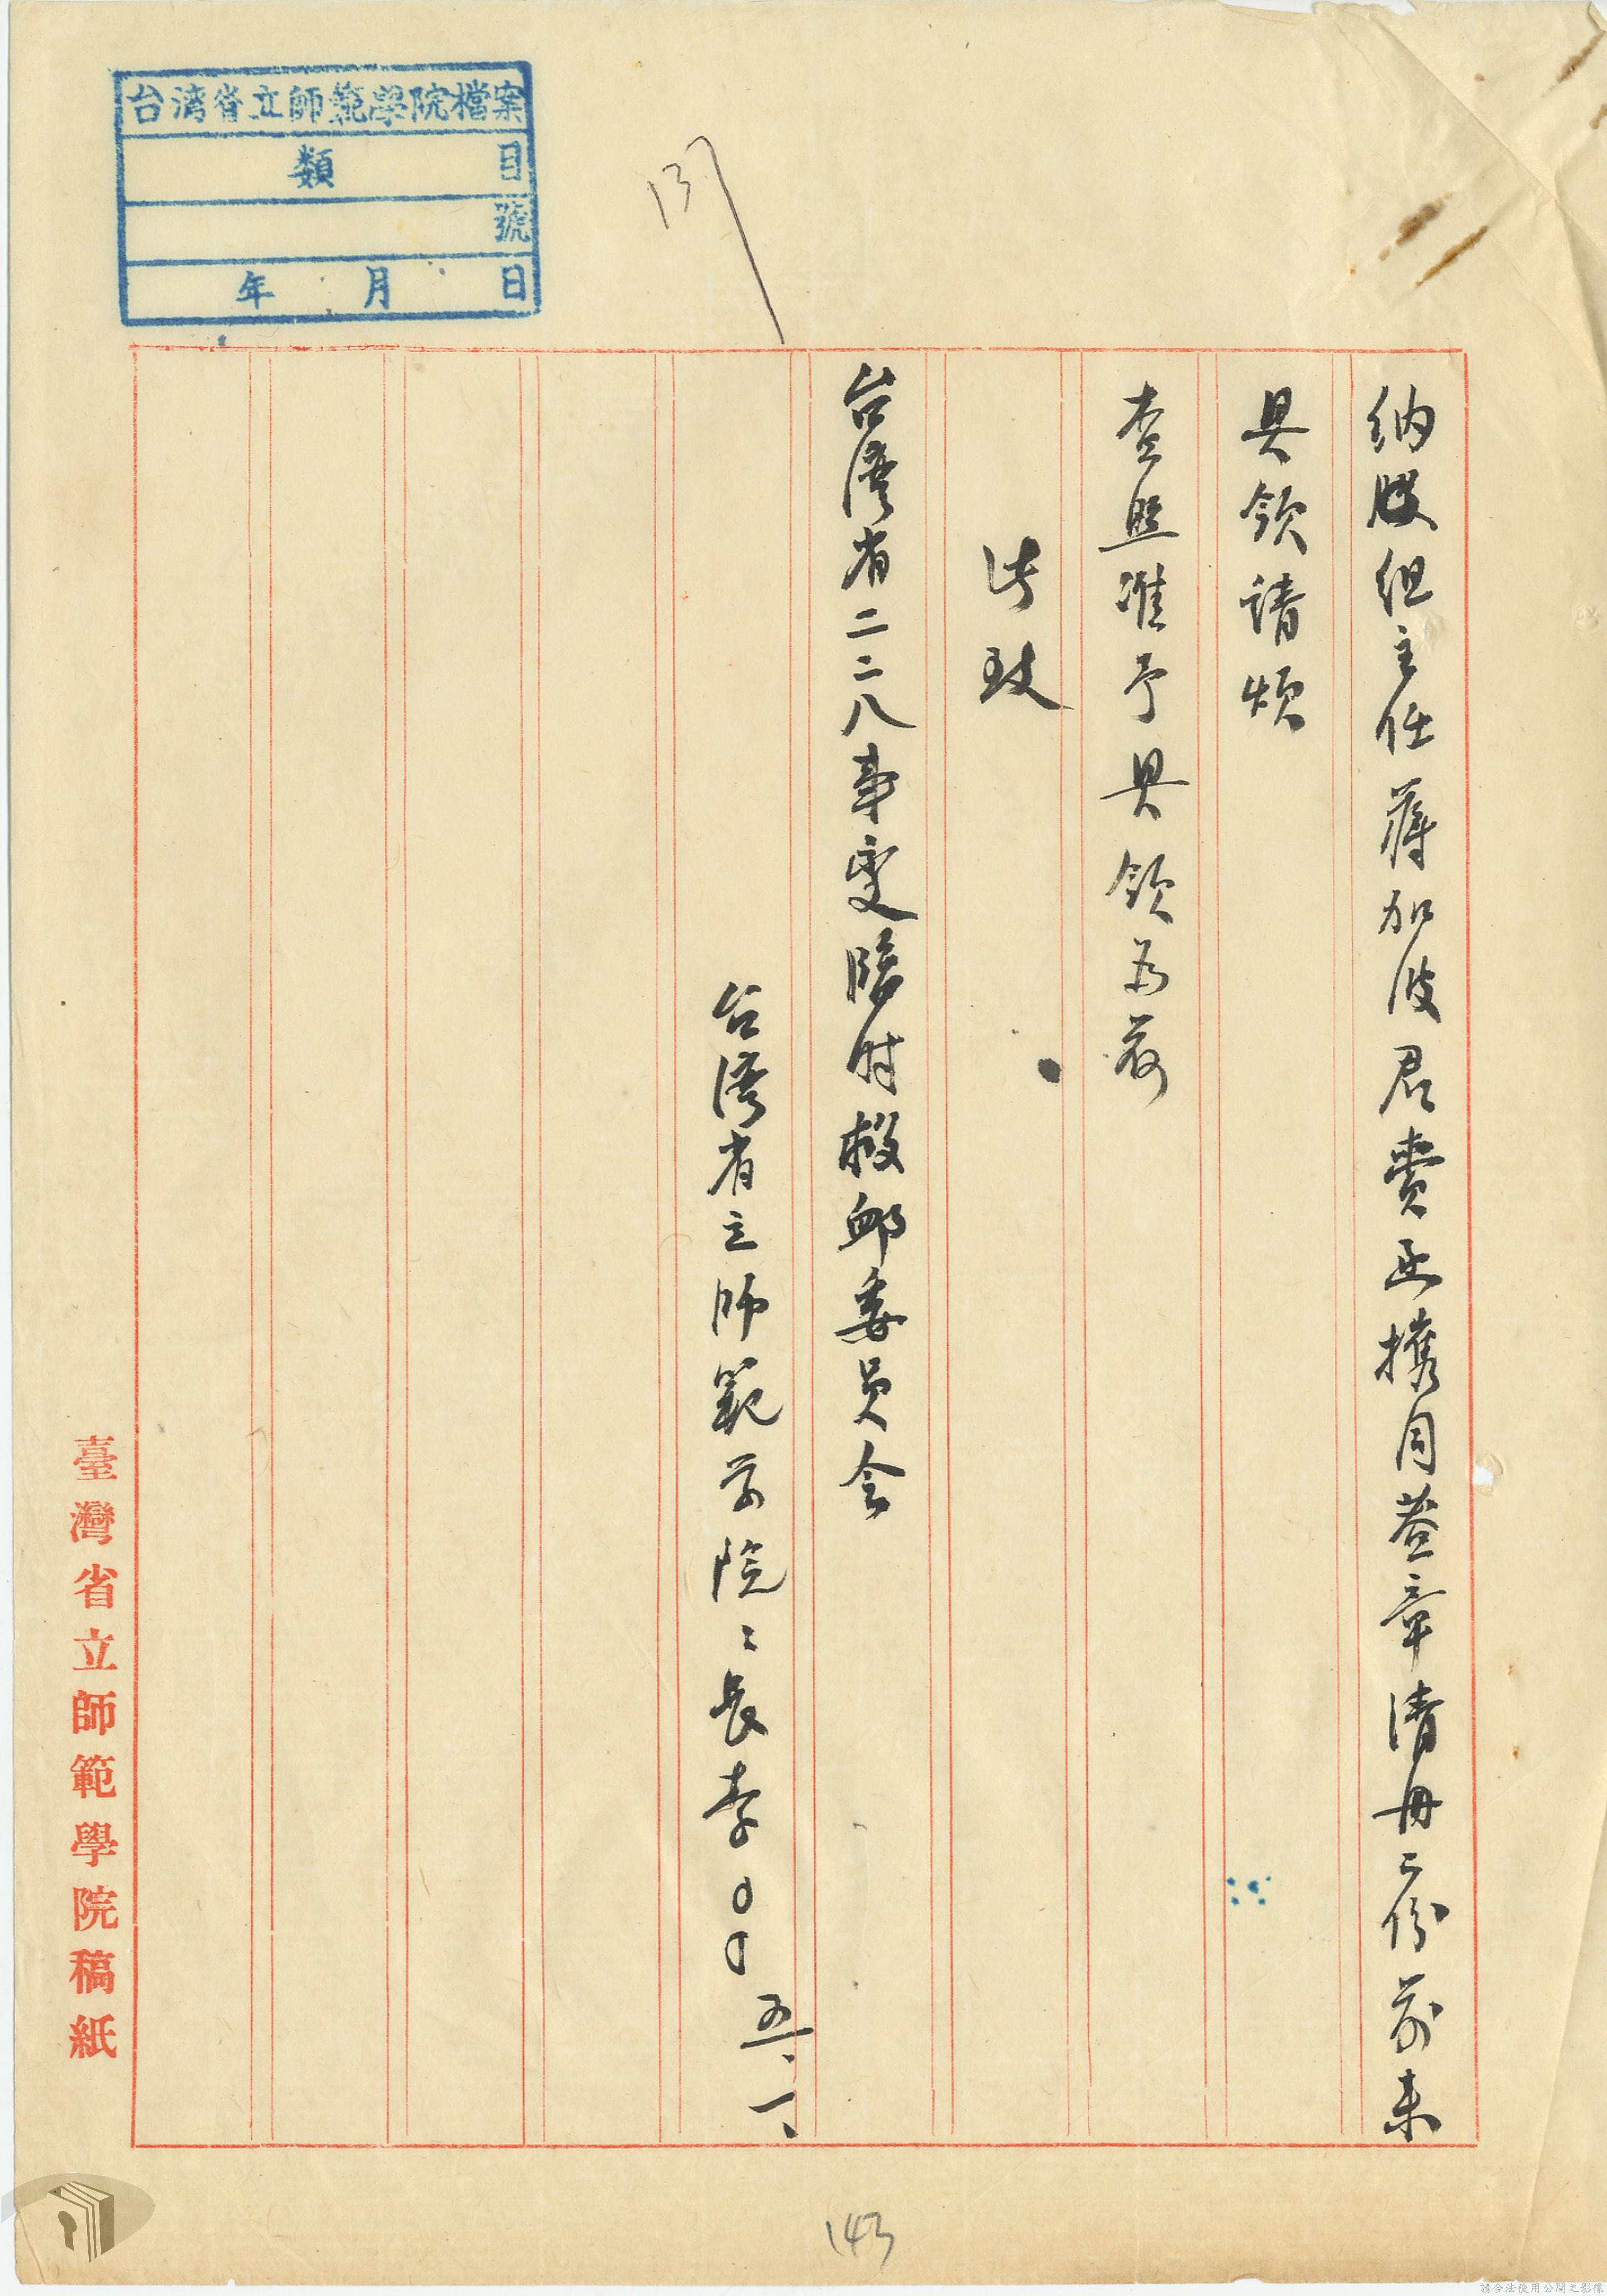 台湾省立師範學院檔案
類 目
號
年 月 日
137
納股組主任蔣加波君賫函携同蓋章清册二份前来
具領請煩
查照准予具領為荷
此致
台灣省二二八事变臨时救卹委員会
台灣省立師範学院院長李〇〇 五.一.
臺灣省立師範學院稿紙
143
請合法使用公開之影像